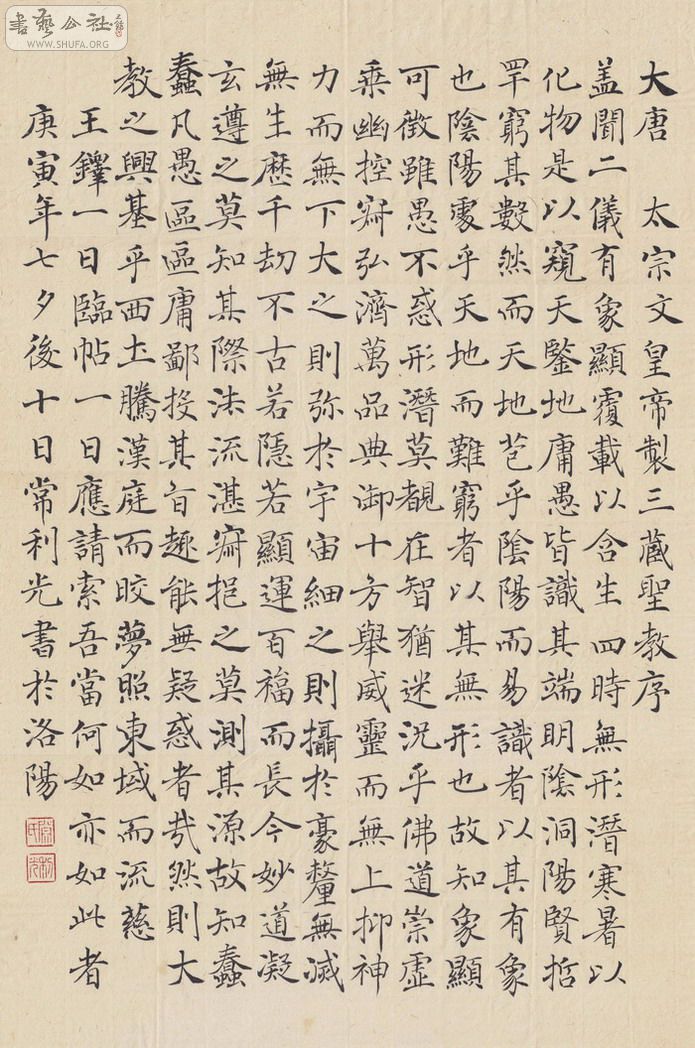 書藝公社
WWW.SHUFA.ORG
大唐 太宗文皇帝製三藏聖教序
盖聞二儀有象顯覆載以含生四時無形潛寒暑以
化物是以窺天鑒地庸愚皆識其端明陰洞陽賢哲
罕窮其數然而天地苞乎陰陽而易識者以其有象
也陰陽處乎天地而難窮者以其無形也故知象顯
可徵雖愚不惑形潛莫覩在智猶迷況乎佛道崇虛
乘幽控寂弘濟萬品典御十方舉威靈而無上抑神
力而無下大之則弥於宇宙細之則攝於豪釐無滅
無生歷千劫不古若隱若顯運百福而長今妙道凝
玄遵之莫知其際法流湛寂挹之莫測其源故知蠢
蠢凡愚區區庸鄙投其旨趣能無疑惑者㦲然則大
教之興基乎西土騰漢庭而晈夢照東域而流慈
王鐸一日臨帖一日應請索吾當何如亦如此者
庚寅年七夕後十日常利光書於洛陽